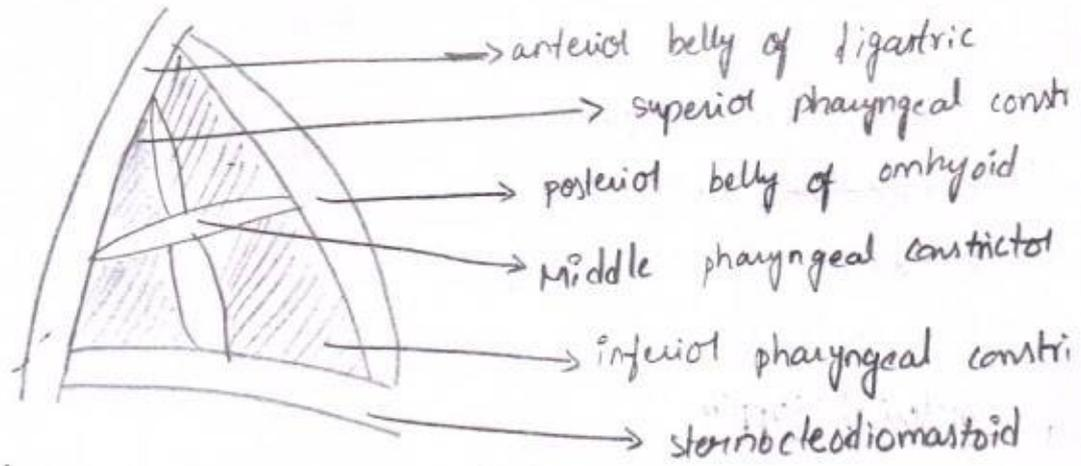 anterior belly of digastric
superior pharyngeal constr
posterior belly of omhyoid
Middle pharyngeal constrictor
inferior pharyngeal constri
sternocleodiomastoid